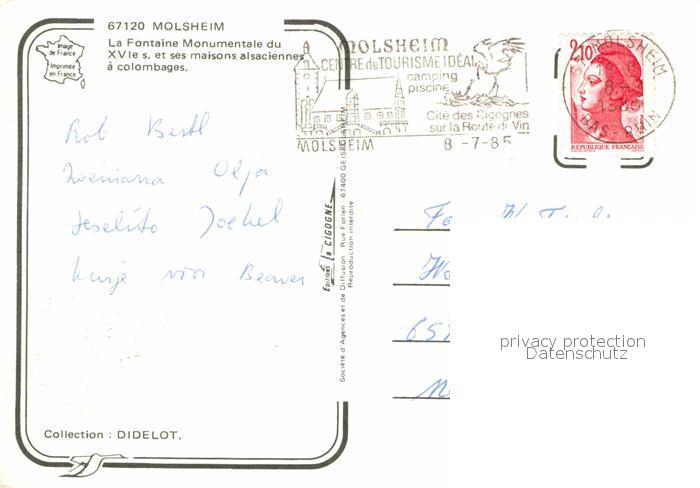 67120 MOLSHEIM
La Fontaine Monumentale du
XVIe s. et ses maisons alsaciennes
à colombages.
Image
de France
Imprimée
en France
MOLSHEIM
CENTRE de TOURISME IDÉAL
camping
piscine
Cité des Cigognes
sur la Route du Vin
MOLSHEIM 8-7-85
2,10
REPUBLIQUE FRANÇAISE
MOLSHEIM
BAS-RHIN
Rob Bertl
Olja
Jockel
von
Editions La CIGOGNE
Société d'Agences et de Diffusion Rue Forlen 67400 GEISPOLSHEIM
Reproduction interdite
privacy protection
Datenschutz
Collection : DIDELOT.